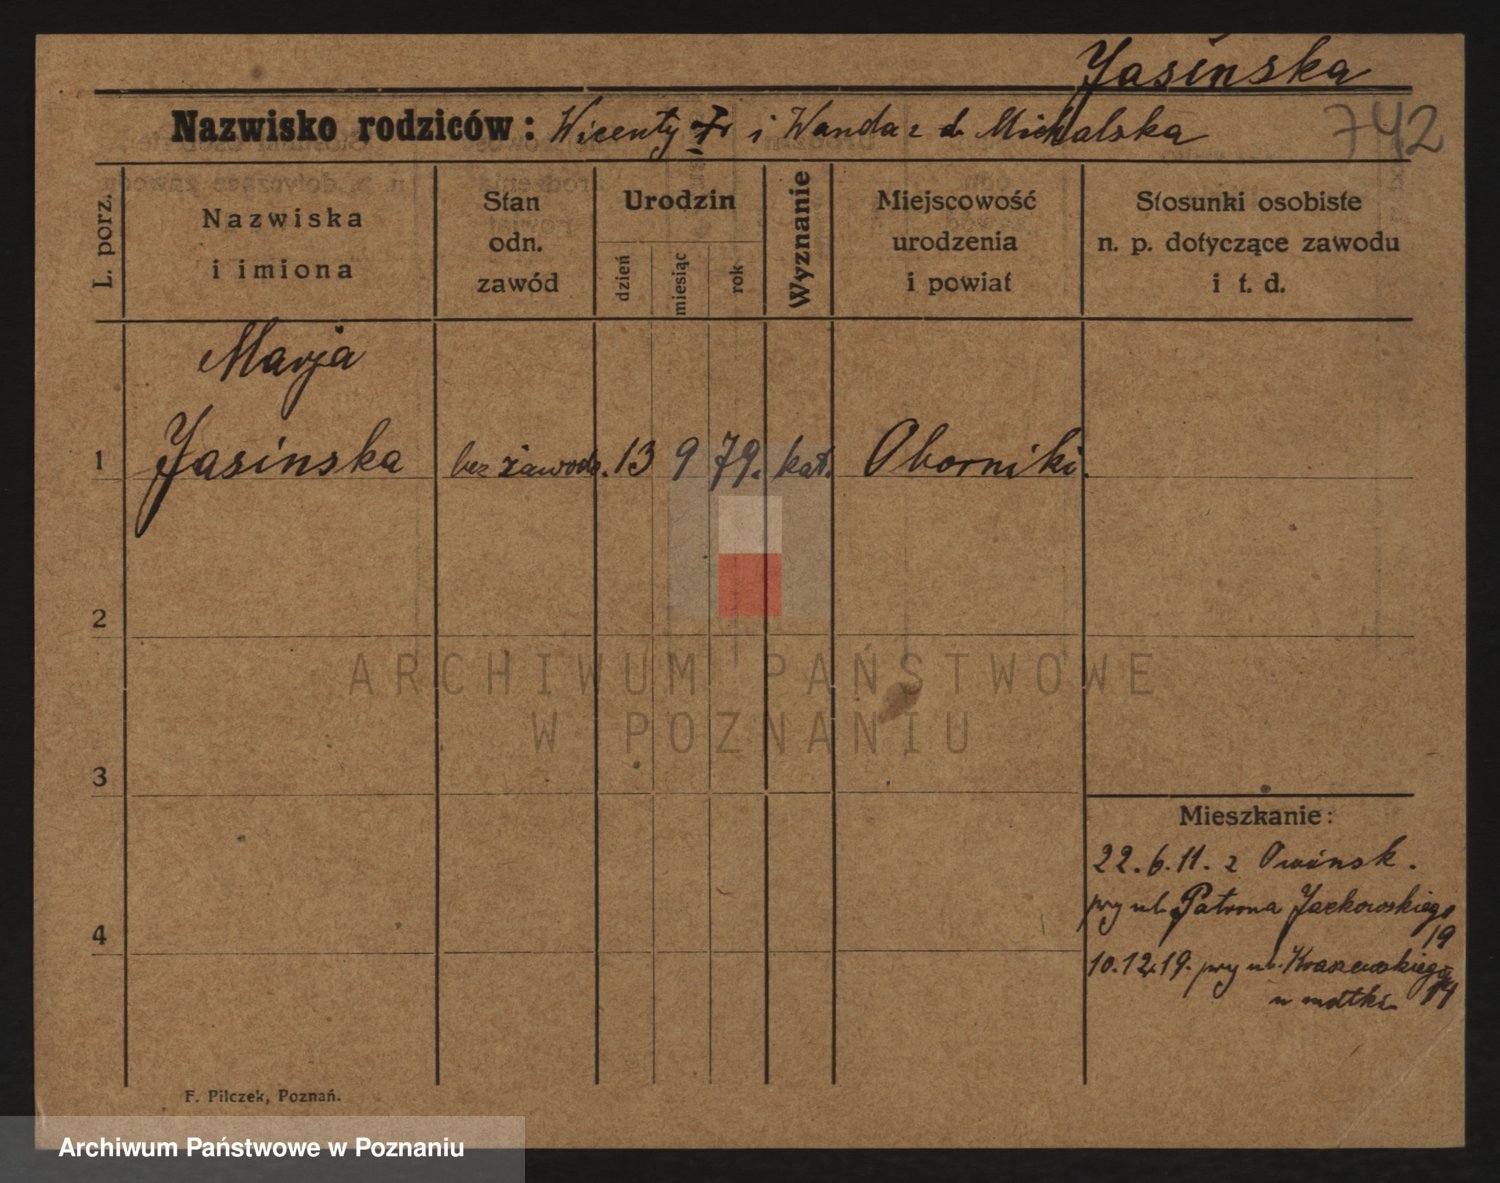 Jasinska
Nazwisko rodziców: Wicenty i Wanda z d. Michalska
742
L. porz.
Nazwiska
i imiona
Stan
odn.
zawód
Urodzin
dzień
miesiąc
rok
Wyznanie
Miejscowość
urodzenia
i powiat
Stosunki osobiste
n. p. dotyczące zawodu
i t. d.
Marja
1 Jasinska bez zawodu. 13 9 79. kat. Oborniki.
2
ARCHIWUM PAŃSTWOWE
W POZNANIU
3
Mieszkanie:
22.6.11. z Owińsk.
przy ul. Patrona Jackowskiego
19
4
10.12.19. przy ul. Kraszewskiego
u matki 14
F. Pilczek, Poznań.
Archiwum Państwowe w Poznaniu